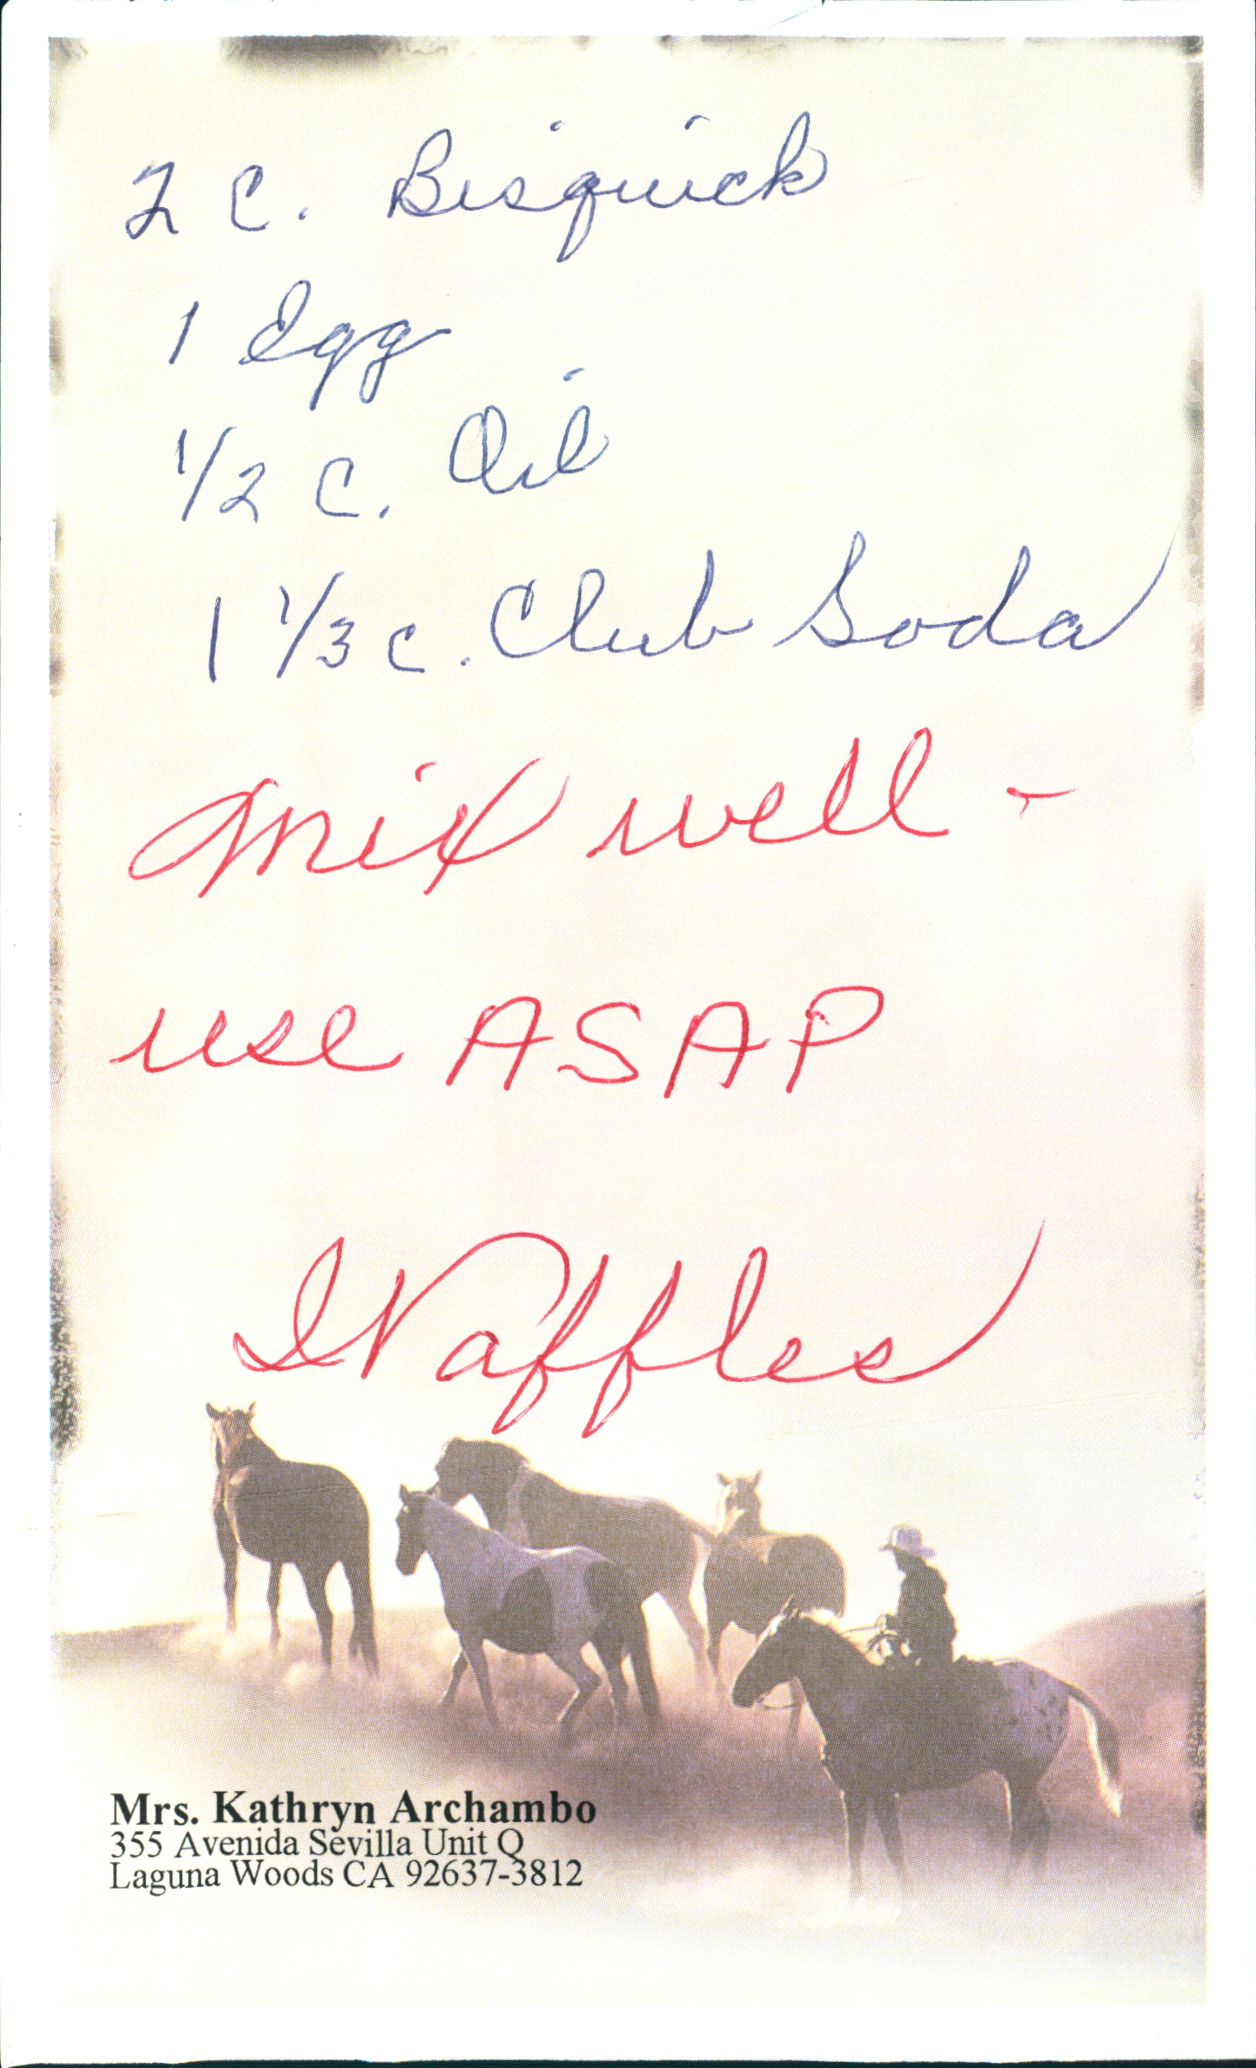 2 C. Bisquick
1 Egg
1/2 C. Oil
1 1/3 c. Club Soda
Mix well -
use ASAP
Waffles
Mrs. Kathryn Archambo
355 Avenida Sevilla Unit Q
Laguna Woods CA 92637-3812